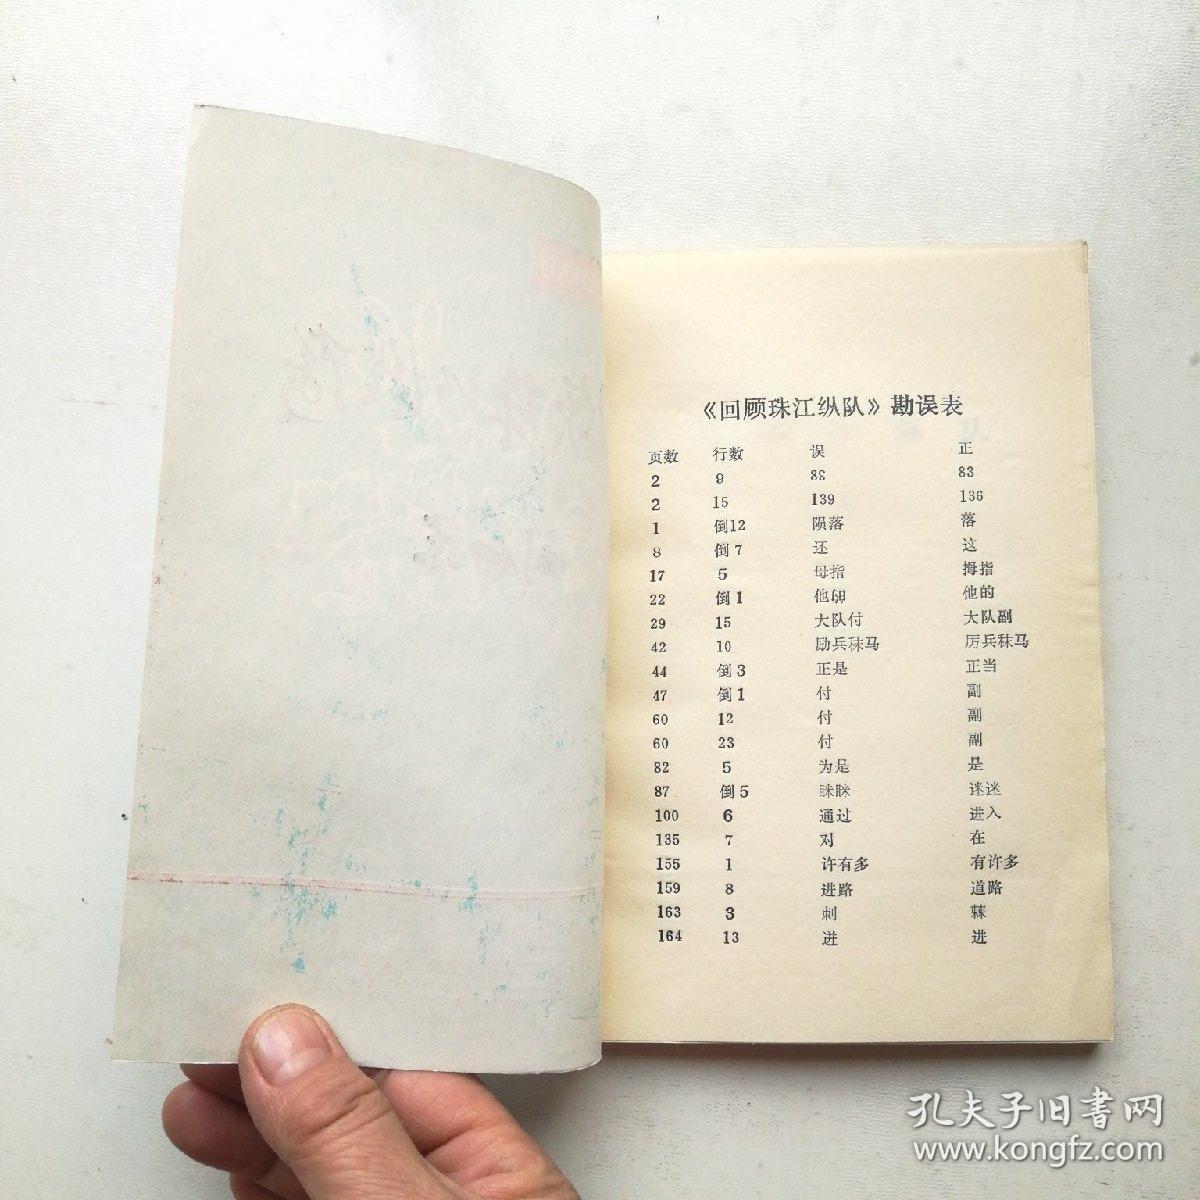 《回顾珠江纵队》勘误表
页数 行数 误 正
2 9 88 83
2 15 139 136
1 倒12 陨落 落
8 倒7 还 这
17 5 母指 拇指
22 倒1 他卽 他的
29 15 大队付 大队副
42 10 励兵秣马 厉兵秣马
44 倒3 正是 正当
47 倒1 付 副
60 12 付 副
60 23 付 副
82 5 为是 是
87 倒5 眯眯 迷迷
100 6 通过 进入
135 7 对 在
155 1 许有多 有许多
159 8 进路 道路
163 3 刺 棘
164 13 迸 进
孔夫子旧書网
www.kongfz.com